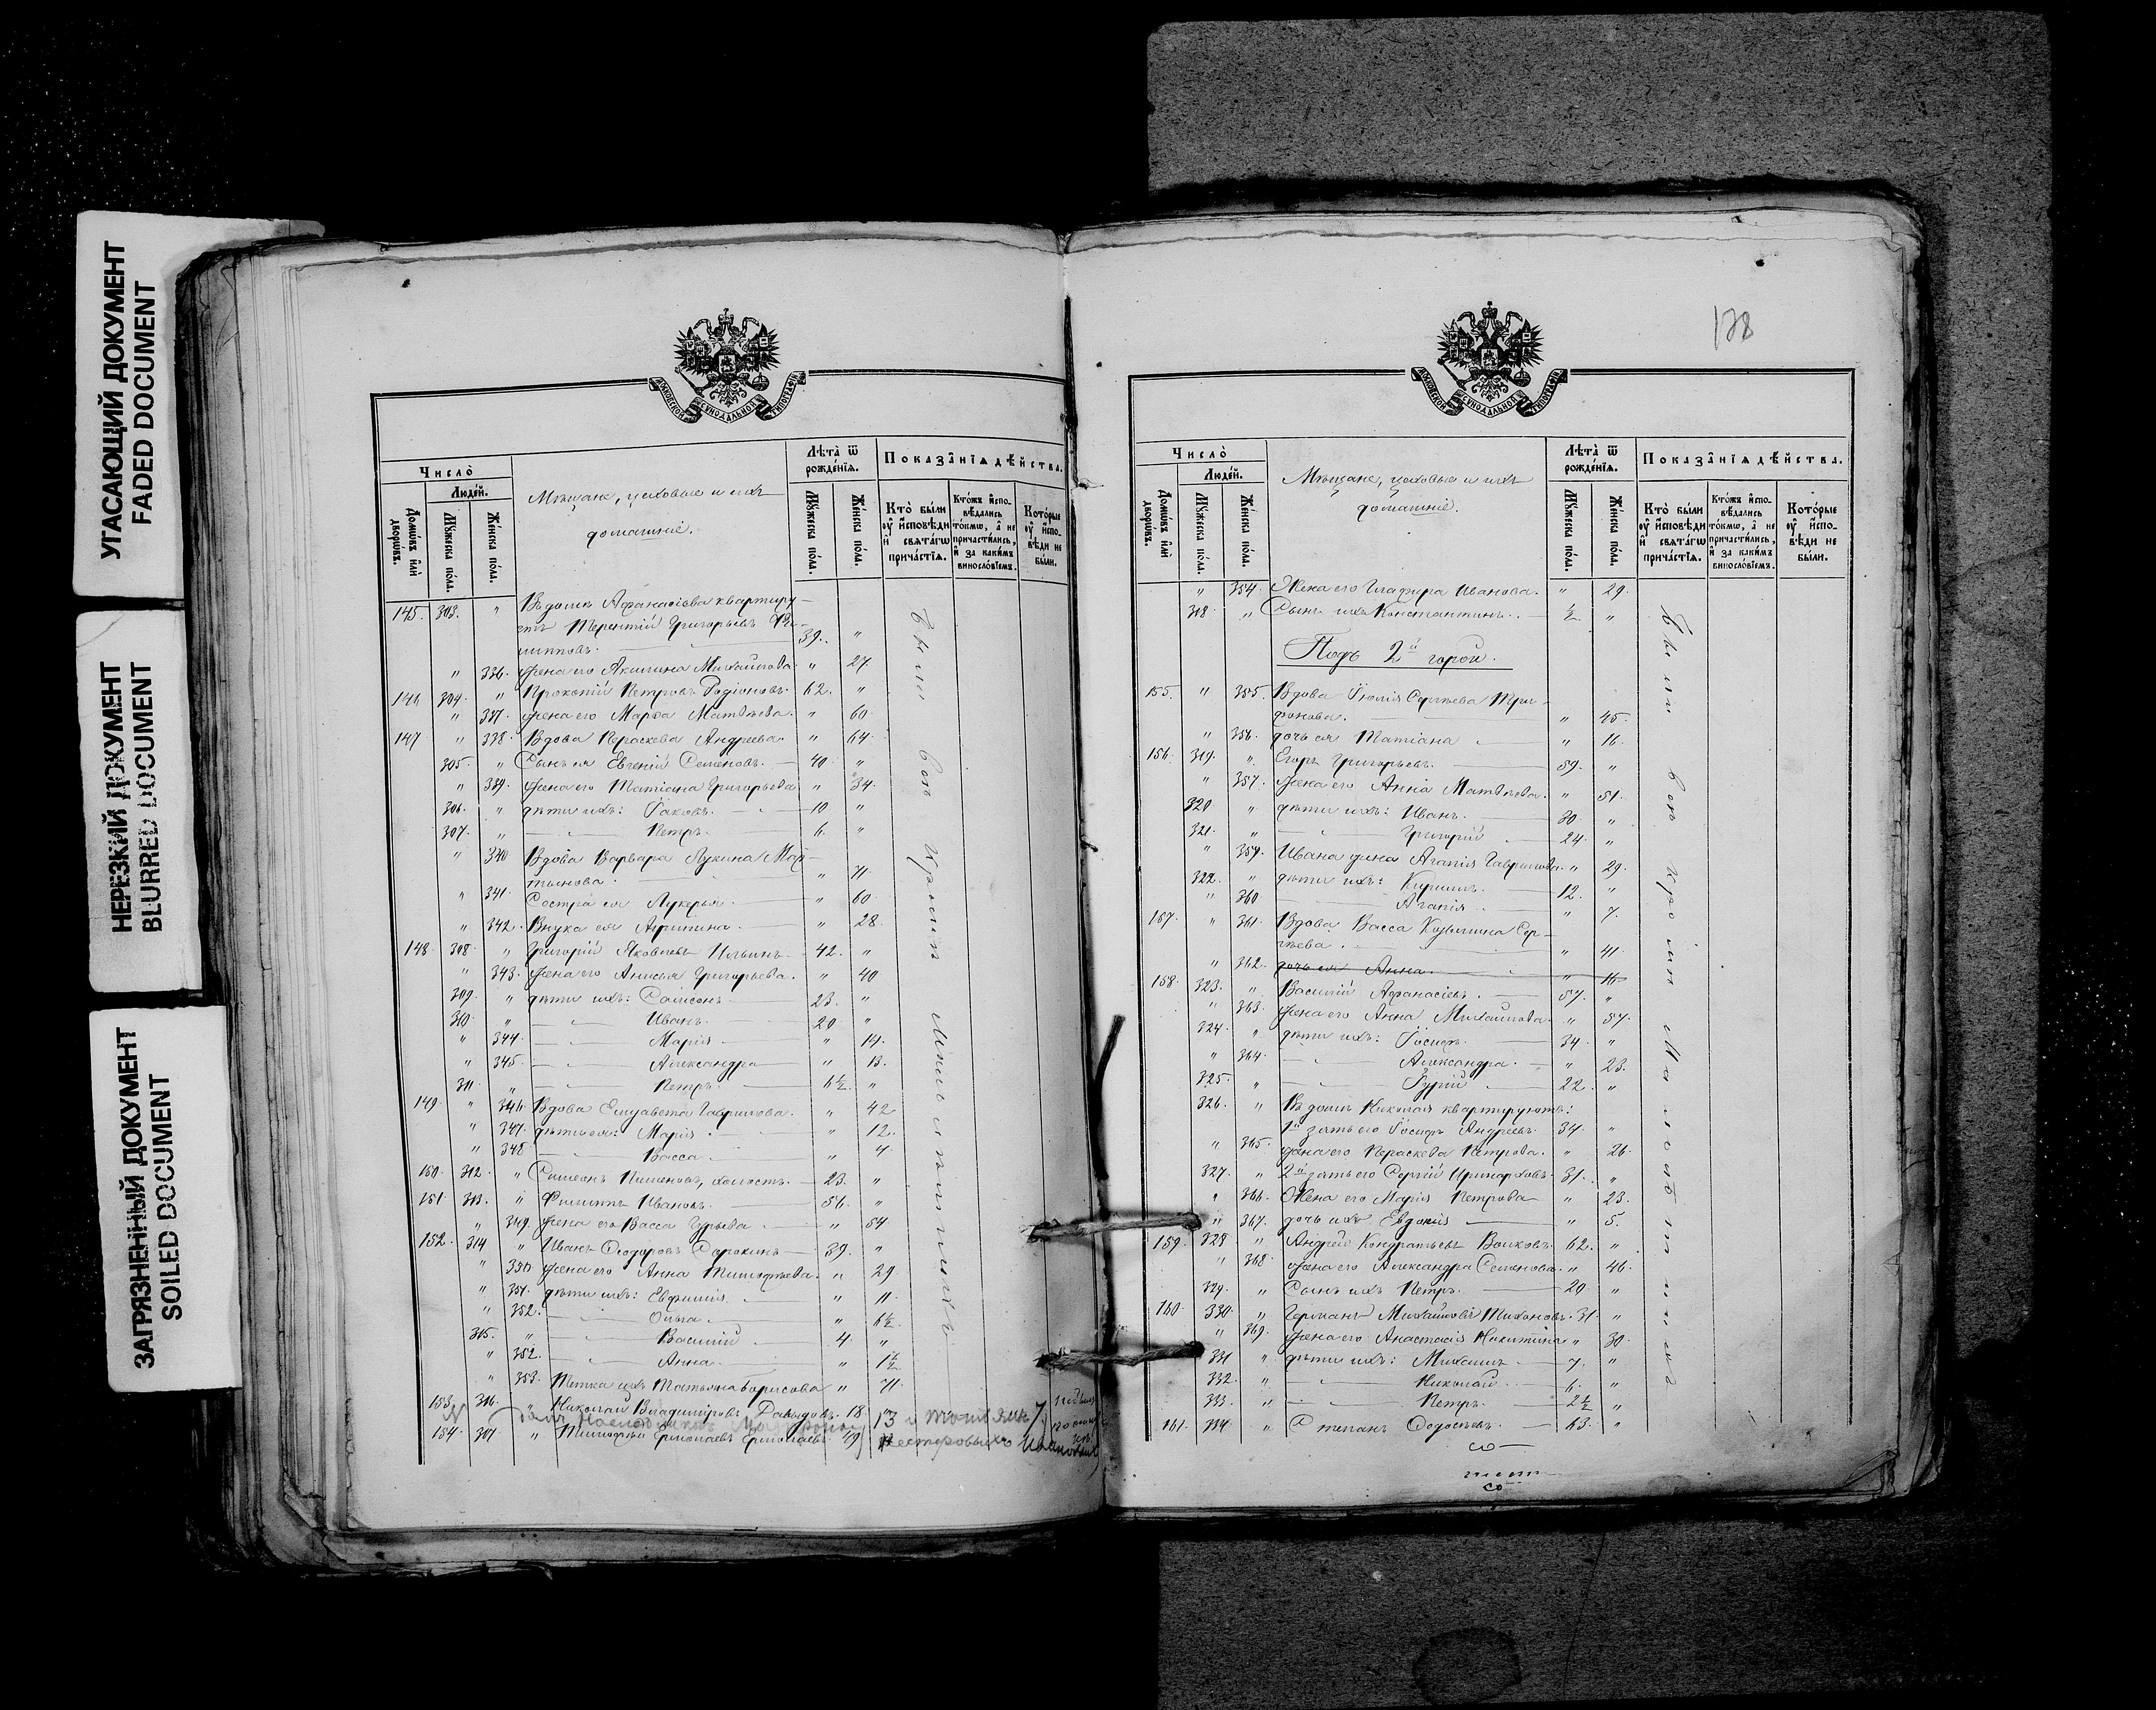 УГАСАЮЩИЙ ДОКУМЕНТ
FADED DOCUMENT
НЕРЕЗКИЙ ДОКУМЕНТ
BLURRED DOCUMENT
ЗАГРЯЗНЕННЫЙ ДОКУМЕНТ
SOILED DOCUMENT
Число̀
Людє́й.
Домѡ́въ и҆лѝ дворѡ́въ.
Мꙋ́жеска по́ла.
Жє́нска по́ла.
Мѣщане, цеховые и ихъ
домашніе.
Лѣ́та ѿ рожде́нїѧ.
Мꙋ́жеска по́ла.
Жє́нска по́ла.
Показа̑нїѧ дѣ́йства.
Кто̀ бы́ли ᲂу҆ и҆сповѣ́ди и҆ свѧта́гѡ прича́стїѧ.
Кто́жъ и҆спо- вѣ́дались то́кмѡ, а҆ не причасти́лись, и҆ за каки́мъ винносло́вїемъ.
Кото́рые ᲂу҆ и҆спо- вѣ́ди не бы́ли.
145. 303. " Въ домѣ Афанасіева квартиру-
етъ Терентій Григорьевъ Фи-
липповъ. 39. "
" 336. жена его Акилина Михайлова " 27.
146 304. " Прокопій Петровъ Родіоновъ. 62. "
" 337. жена его Марѳа Матвѣева. " 60.
147 " 338. Вдова Параскева Андреева " 64.
305. " Сынъ ея Евгеній Семеновъ. 40. "
" 339. жена его Татіана Григорьева " 34.
306. " дѣти ихъ: Іаковъ. 10. "
307. " Петръ. 6. "
" 340 Вдова Варвара Лукина Мар-
тынова. " 71.
" 341. Сестра ея Лукерья. " 60.
" 342. Внука ея Агрипина. " 28.
148. 308. " Григорій Яковлевъ Ильинъ. 42. "
" 343. жена его Анисья Григорьева. " 40
309. " дѣти ихъ: Самсонъ 23. "
310. " Иванъ. 20 "
" 344. Марія " 14.
" 345. Александра " 13.
311. " Петръ. 6½. "
149. " 346. Вдова Елизавета Гаврилова. " 42
" 347. дѣти ея: Марія. " 12.
" 348 Васса. " 4.
150. 312. " Симеонъ Пименовъ, холостъ. 23. "
151. 313. " Филиппъ Ивановъ. 56. "
" 349. жена его Васса Гурьева " 54
152. 314 " Иванъ Ѳеодоровъ Сорокинъ 39. "
" 350. жена его Анна Тимоѳеева. " 29
" 351. дѣти ихъ: Евфимія. " 11.
" 352. Ольга. " 6½
315. " Василій 4. "
" 352. Анна. " 1½
" 353. Тетка ихъ Татьяна Борисова " 71.
153. 316. " Николай Владиміровъ Давыдовъ. 18.
154. 317 " Тимоѳей 49
Были всѣ кромѣ малолѣтнихъ
138
Число̀
Людє́й.
Домѡ́въ и҆лѝ дворѡ́въ.
Мꙋ́жеска по́ла.
Жє́нска по́ла.
Мѣщане, цеховые и ихъ
домашніе.
Лѣ́та ѿ рожде́нїѧ.
Мꙋ́жеска по́ла.
Жє́нска по́ла.
Показа̑нїѧ дѣ́йства.
Кто̀ бы́ли ᲂу҆ и҆сповѣ́ди и҆ свѧта́гѡ прича́стїѧ.
Кто́жъ и҆спо- вѣ́дались то́кмѡ, а҆ не причасти́лись, и҆ за каки́мъ винносло́вїемъ.
Кото́рые ᲂу҆ и҆спо- вѣ́ди не бы́ли.
" 354. Жена его Глафира Иванова. " 29.
318. " Сынъ ихъ Константинъ. ½ "
Подъ 2й горой.
155. " 355. Вдова Іюлія Сергѣева Три-
фонова. " 45.
" 356. дочь ея Татіана " 16.
156. 319. " Егоръ Григорьевъ. 59. "
" 357. жена его Анна Матвѣева. " 51.
320 " дѣти ихъ: Иванъ. 30. "
321. " Григорій 24. "
" 359. Ивана жена Агапія Гаврилова " 29.
322. " дѣти ихъ: Кириллъ. 12. "
" 360. Агапія " 7.
157. " 361. Вдова Васса Козьмина Сер-
гѣева. " 41.
" 362. дочь ея Анна. " 16
158. 323. " Василій Афанасіевъ. 57. "
" 363. жена его Анна Михайлова. " 57.
324. " дѣти ихъ: Іосифъ. 34. "
" 364. Александра. " 23.
325. " Гурій 22. "
326. " Въ домѣ Николая квартируютъ:
1й зять его Іосифъ Андреевъ. 34. "
" 365. жена его Параскева Петрова. " 26.
327. " 2й зять его Сергій Иринарховъ. 31. "
" 366. Жена его Марія Петрова " 23.
" 367. дочь ихъ Евдокія " 5.
159. 328 " Андрей Кондратьевъ Волковъ. 62. "
" 368. жена его Александра Семенова. " 46.
329. " Сынъ ихъ Петръ. 20. "
160. 330. " Германъ Михайловъ Тихоновъ. 31. "
" 369. жена его Анастасія Никитина " 30.
331 " дѣти ихъ: Михаилъ 7. "
332. " Николай 6. "
333. " Петръ. 2½ "
161. 334 " Степанъ Ѳедосѣевъ. 63. "
Были всѣ кромѣ малолѣтнихъ